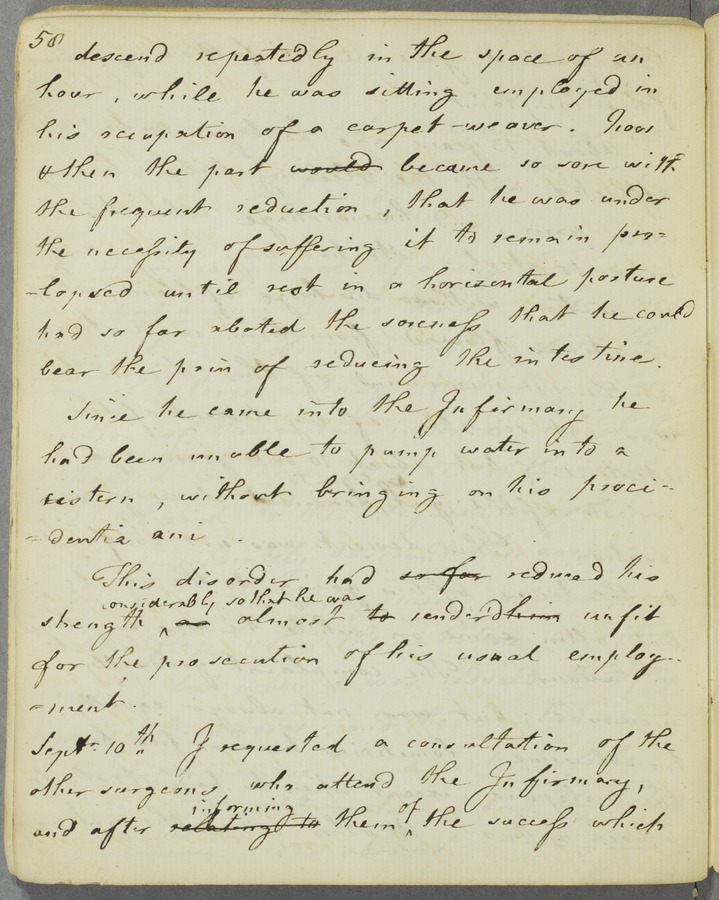 58
descend repeatedly in the space of an
hour, while he was sitting employed in
his occupation of a carpet-weaver. Now
& then the part would became so sore with
the frequent reduction, that he was under
the necessity of suffering it to remain pro=
-lapsed until rest in a horizontal posture
had so far abated the soreness that he could
bear the pain of reducing the intestine.
Since he came into the Infirmary he
had been unable to pump water into a
cistern, without bringing on his proci=
=dentia ani.
This disorder had so far reduced his
considerably, so that he was
strength as almost to render'd him unfit
for the prosecution of his usual employ-
-ment.
Septr. 10th I requested a consultation of the
other surgeons who attend the Infirmary,
informing of
and after relating to them the success which